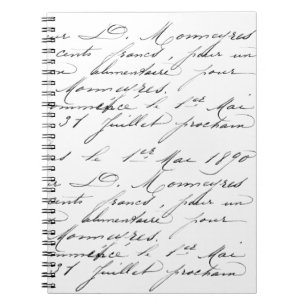 ar D. Monneyres
cents francs, pour un
on alimentaire pour
Monneyres.
ommence le 1er Mai
31 Juillet prochain
as le 1er Mai 1890
er D. Monneyres
cents francs, pour un
on alimentaire pour
Monneyres.
ommence le 1er Mai
31 Juillet prochain